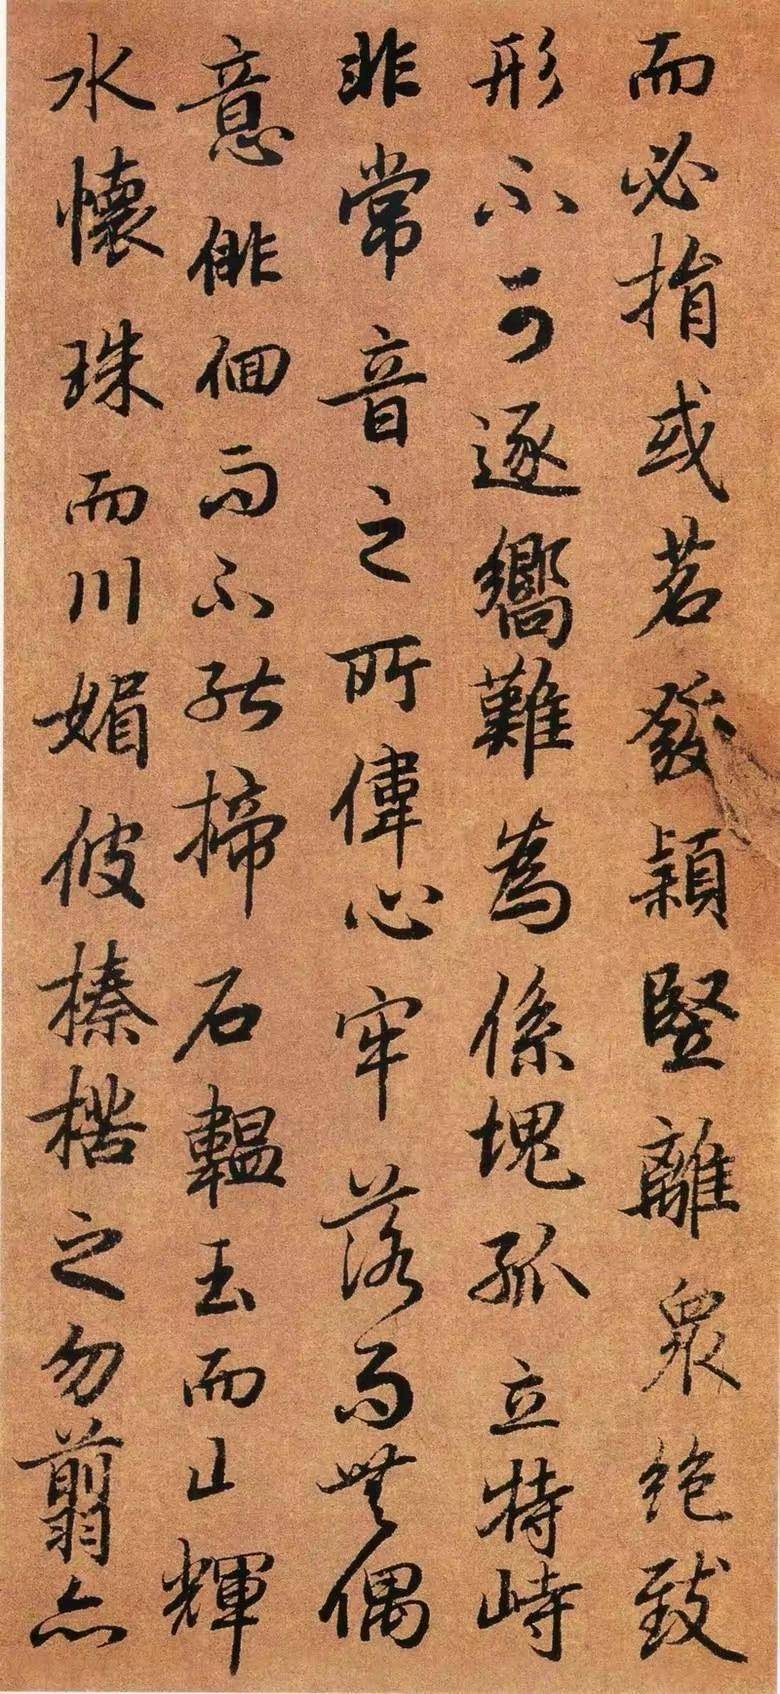 而必揹或苕發穎竪離眾絕致
形不可逐嚮難為係塊孤立特峙
非常音之所偉心牢落而無偶
意徘徊而不能揥石韞玉而山輝
水懷珠而川媚彼榛楛之勿翦亦